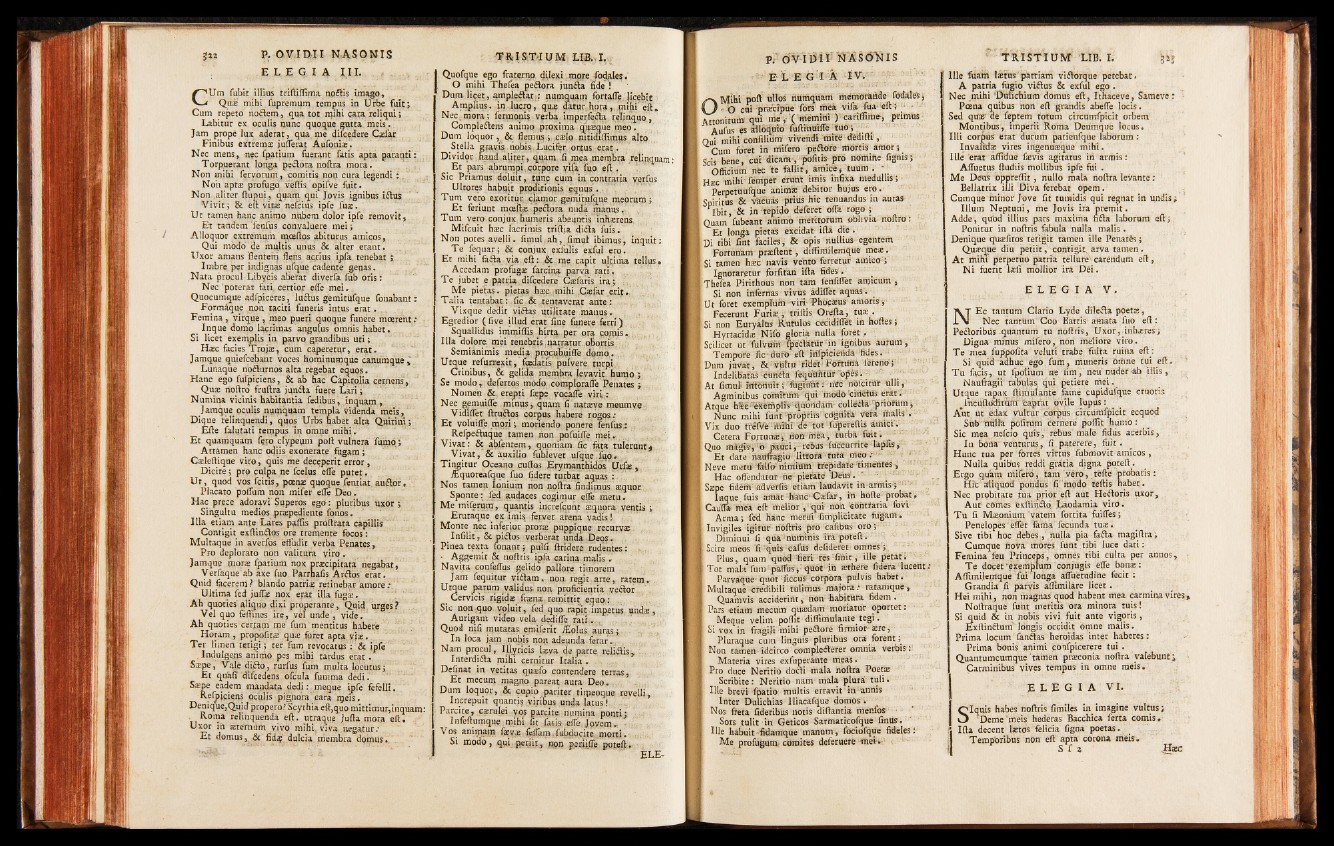 322 P. OVIDII NASONIS
ELEGIA III.
CUm subit illius tristissima noctis imago,
Quæ mihi supremum tempus in Urbe fuit;
Cum repeto noctem, qua tot mihi cara reliqui;
Labitur ex oculis nunc quoque gutta meis.
Jam prope lux aderat, qua me discedere Cæsar
Finibus extremæ jusserat Ausoniæ.
Nec mens, nec spatium fuerant satis apta paranti:
Torpuerant longa pectora nostra mora.
Non mihi servorum, comitis non cura legendi:
Non aptæ profugo vestis opisve fuit.
Non aliter stupui, quam qui Jovis ignibus ictus
Vivit; & est vitæ nescius ipse suæ.
Ut tamen hanc animo nubem dolor ipse removit,
Et tandem sensus convaluere mei;
Alloquor extremum mœstos abiturus amicos,
Qui modo de multis unus & alter erant.
Uxor amans flentem flens acrius ipsa tenebat;
Imbre per indignas usque cadente genas.
Nata procul Libycis aberat diversa sub oris:
Nec poterat fati certior esse mei.
Quocumque adspiceres, luctus gemitusque sonabant:
Formaque non taciti funeris intus erat.
Femina, virque, meo pueri quoque funere mœrent:
Inque domo lacrimas angulus omnis habet.
Si licet exemplis in parvo grandibus uti;
Hæc facies Trojæ, cum caperetur, erat.
Jamque quiescebant voces hominumque canumque,
Lunaque nocturnos alta regebat equos.
Hanc ego suspiciens, & ab hac Capitolia cernens,
Quæ nostro frustra juncta fuere Lari;
Numina vicinis habitantia sedibus, inquam,
Jamque oculis numquam templa videnda meis,
Dique relinquendi, quos Urbs habet alta Quirini;
Este salutati tempus in omne mihi.
Et quamquam sero clypeum post vulnera sumo;
Attamen hanc odiis exonerate fugam;
Cælestique viro, quis me deceperit error,
Dicite; pro culpa ne scelus esse putet.
Ut, quod vos scitis, pœnæ quoque sentiat auctor.
Placato possum non miser esse Deo.
Hac prece adoravi Superos ego: pluribus uxor;
Singultu medios præpediente sonos.
Illa etiam ante Lares passis prostrata capillis
Contigit exstinctos ore tremente focos:
Multaque in aversos effudit verba Penates,
Pro deplorato non valitura viro.
Jamque moræ spatium nox præcipitata negabat,
Versaque ab axe suo Parrhasis Arctos erat.
Quid facerem? blando patriæ retinebar amore:
Ultima sed jussæ nox erat illa fugæ.
Ah quoties aliquo dixi properante, Quid urges?
Vel quo festines ire, vel unde, vide.
Ah quoties certam me sum mentitus habere
Horam, propositæ quæ foret apta viæ.
Ter limen tetigi; ter sum revocatus: & ipse
Indulgens animo pes mihi tardus erat.
Sæpe, Vale dicto, rursus sum multa locutus;
Et quasi discedens oscula summa dedi.
Sæpe eadem mandata dedi: meque ipse fefelli,
Respiciens oculis pignora cara meis.
Denique, Quid propero? Scythia est, quo mittimur, inquam:
Roma relinquenda est. utraque Justa mora est.
Uxor in æternum vivo mihi viva negatur:
Et domus, & fidæ dulcia membra domus.
TRISTIUM LIB. I.
Quosque ego fraterno dilexi more sodales.
O mihi Thesea pectora juncta fide!
Dum licet, amplectar: numquam fortasse licebit
Amplius. in lucro, quæ datur hora, mihi est.
Nec mora: sermonis verba imperfecta relinquo,
Complectens animo proxima quæque meo.
Dum loquor, & flemus, cælo nitidissimus alto
Stella gravis nobis Lucifer ortus erat.
Dividor haud aliter, quam si mea membra relinquam:
Et pars abrumpi corpore visa suo est.
Sic Priamus doluit, tunc cum in contraria versus
Ultores habuit proditionis equus.
Tum vero exoritur clamor gemitusque meorum;
Et feriunt mœstæ pectora nuda manus.
Tum vero conjux humeris abeuntis inhærens
Miscuit hæc lacrimis tristia dicta suis.
Non potes avelli. simul ah, simul ibimus, inquit:
Te sequar; & conjux exsulis exsul ero.
Et mihi facta via est: & me capit ultima tellus.
Accedam profugæ sarcina parva rati.
Te jubet e patria discedere Cæsaris ira;
Me pietas. pietas hæc mihi Cæsar erit.
Talia tentabat: sic & tentaverat ante:
Vixque dedit victas utilitate manus.
Egredior (sive illud erat sine funere ferri)
Squallidus immissis hirta per ora comis.
Illa dolore mei tenebris narratur obortis
Semianimis media procubuisse domo.
Utque resurrexit, fœdatis pulvere turpi
Crinibus, & gelida membra levavit humo;
Se modo, desertos modo complorasse Penates;
Nomen & erepti sæpe vocasse viri:
Nec gemuisse minus, quam si natæve meumve
Vidisset structos corpus habere rogos:
Et voluisse mori; moriendo ponere sensus:
Respectuque tamen non posuisse mei.
Vivat: & absentem, quoniam sic fata tulerunt,
Vivat, & auxilio sublevet usque suo.
Tingitur Oceano custos Erymanthidos Ursæ,
Æquoreasque suo sidere turbat aquas:
Nos tamen Ionium non nostra findimus æquor
Sponte: sed audaces cogimur esse metu.
Me miserum, quantis increscunt æquora ventis;
Erutaque ex imis fervet arena vadis!
Monte nec inferior proræ puppique recurvæ
Insilit, & pictos verberat unda Deos.
Pinea texta sonant; pulsi stridere rudentes:
Aggemit & nostris ipsa carina malis.
Navita confessus gelido pallore timorem
Jam sequitur victam, non regit arte, ratem.
Utque parum validus non proficientia vector
Cervicis rigidæ fræna remittit equo:
Sic non quo voluit, sed quo rapit impetus undæ,
Aurigam video vela dedisse rati.
Quod nisi mutatas emiserit Æolus auras;
In loca jam nobis non adeunda ferar.
Nam procul, Illyricis læva de parte relictis,
Interdicta mihi cernitur Italia.
Desinat in vetitas quæso contendere terras,
Et mecum magno pareat aura Deo.
Dum loquor, & cupio pariter timeoque revelli,
Increpuit quantis viribus unda latus!
Parcite, cærulei vos parcite numina ponti;
Infestumque mihi sit satis esse Jovem.
Vos animam sævæ fessam subducite morti.
Si modo, qui petiit, non periisse potest.
ELE-
P. OVIDII NASONIS
ELEGIA IV.
O Mihi post ullos numquam memorande sodales,
O cui præcipue sors mea visa sua est;
Attonitum qui me, (memini) carissime, primus
Ausus es alloquio sustinuisse tuo;
Qui mihi consilium vivendi mite dedisti,
Cum foret in misero pectore mortis amor;
Scis bene, cui dicam, positis pro nomine signis;
Officium nec te fallit, amice, tuum.
Hæc mihi semper erunt imis infixa medullis;
Perpetuusque animæ debitor hujus ero.
Spiritus & vacuas prius hic tenuandus in auras
Ibit, & in tepido deseret ossa rogo;
Quam subeant animo meritorum oblivia nostro:
Et longa pietas excidat ista die.
Di tibi sint faciles, & opis nullius egentem
Fortunam præstent, dissimilemque meæ.
Si tamen hæc navis vento ferretur amico;
Ignoraretur forsitan ista fides.
Thesea Pirithous non tam sensisset amicum,
Si non infernas vivus adisset aquas.
Ut foret exemplum viri Phocæus amoris,
Fecerunt Furiæ, tristis Oresta, tuæ.
Si non Euryalus Rutulos cecidisset in hostes;
Hyrtacidæ Niso gloria nulla foret.
Scilicet ut fulvum spectatur in ignibus aurum,
Tempore sic duro est inspicienda fides.
Dum juvat, & vultu ridet Fortuna sereno;
Indelibatas cuncta sequuntur opes.
At simul intonuit; fugiunt: nec noscitur ulli,
Agminibus comitum qui modo cinctus erat.
Atque hæc exemplis quondam collecta priorum,
Nunc mihi sunt propriis cognita vera malis.
Vix duo tresve mihi de tot superestis amici.
Cetera Fortunæ, non mea, turba fuit.
Quo magis, o pauci, rebus succurrite lapsis,
Et date naufragio littora tuta meo:
Neve metu falso nimium trepidate timentes,
Hac offendatur ne pietate Deus.
Sæpe fidem adversis etiam laudavit in armis;
Inque suis amat hanc Cæsar, in hoste probat.
Caussa mea est melior, qui non contraria fovi
Arma; sed hanc merui simplicitate fugam.
Invigiles igitur nostris pro casibus oro;
Diminui si qua numinis ira potest.
Scire meos si quis casus desideret omnes;
Plus, quam quod fieri res sinit, ille petat.
Tot mala sum passus, quot in æthere sidera lucent:
Parvaque quot siccus corpora pulvis habet.
Multaque credibili tulimus majora: ratamque,
Quamvis acciderint, non habitura fidem.
Pars etiam mecum quædam moriatur oportet:
Meque velim possit dissimulante tegi.
Si vox in fragili mihi pectore firmior ære,
Pluraque cum linguis pluribus ora forent;
Non tamen idcirco complecterer omnia verbis:
Materia vires exsuperante meas.
Pro duce Neritio docti mala nostra Poetæ
Scribite: Neritio nam mala plura tuli.
Ille brevi spatio multis erravit in annis
Inter Dulichias Iliacasque domos.
Nos freta sideribus notis distantia mensos
Sors tulit in Geticos Sarmaticosque sinus.
Ille habuit fidamque manum, sociosque fideles:
Me profugum comites deseruere mei.
TRISTIUM LIB. I. 323
Ille suam lætus patriam victorque petebat.
A patria fugio victus & exsul ego.
Nec mihi Dulichium domus est, Ithaceve, Sameve:
Pœna quibus non est grandis abesse locis.
Sed quæ de septem totum circumspicit orbem
Montibus, imperii Roma Deumque locus.
Illi corpus erat durum patiensque laborum:
Invalidæ vires ingenuæque mihi.
Ille erat assidue sævis agitatus in armis:
Assuetus studiis mollibus ipse fui.
Me Deus oppressit, nullo mala nostra levante:
Bellatrix illi Diva ferebat opem.
Cumque minor Jove sit tumidis qui regnat in undis;
Illum Neptuni, me Jovis ira premit.
Adde, quod illius pars maxima ficta laborum est;
Ponitur in nostris fabula nulla malis.
Denique quæsitos tetigit tamen ille Penates;
Quæque diu petiit, contigit arva tamen.
At mihi perpetuo patria tellure carendum est,
Ni fuerit læsi mollior ira Dei.
ELEGIA V.
NEc tantum Clario Lyde dilecta poetæ,
Nec tantum Coo Battis amata suo est:
Pectoribus quantum tu nostris, Uxor, inhæres;
Digna minus misero, non meliore viro.
Te mea supposita veluti trabe fulta ruina est:
Si quid adhuc ego sum, muneris omne tui est.
Tu facis, ut spolium ne sim, neu nuder ab illis,
Naufragii tabulas qui petiere mei.
Utque rapax stimulante fame cupidusque cruoris
Incustoditum captat ovile lupus:
Aut ut edax vultur corpus circumspicit ecquod
Sub nulla positum cernere possit humo:
Sic mea nescio quis, rebus male fidus acerbis,
In bona venturus, si paterere, fuit.
Hunc tua per fortes virtus submovit amicos,
Nulla quibus reddi gratia digna potest.
Ergo quam misero, tam vero, teste probaris:
Hic aliquod pondus si modo testis habet.
Nec probitate tua prior est aut Hectoris uxor,
Aut comes exstincto Laodamia viro.
Tu si Mæonium vatem sortita fuisses;
Penelopes esset fama secunda tuæ.
Sive tibi hoc debes, nulla pia facta magistra,
Cumque nova mores sunt tibi luce dati:
Femina seu Princeps, omnes tibi culta per annos,
Te docet exemplum conjugis esse bonæ:
Assimilemque sui longa assuetudine fecit:
Grandia si parvis assimilare licet.
Hei mihi, non magnas quod habent mea carmina vires,
Nostraque sunt meritis ora minora tuis!
Si quid & in nobis vivi fuit ante vigoris,
Exstinctum longis occidit omne malis.
Prima locum sanctas heroidas inter haberes:
Prima bonis animi conspicerere tui.
Quantumcumque tamen præconia nostra valebunt;
Carminibus vives tempus in omne meis.
ELEGIA VI.
SIquis habes nostris similes in imagine vultus;
Deme meis hederas Bacchica serta comis.
Ista decent lætos felicia signa poetas.
Temporibus non est apta corona meis.
S s 2 Hæc